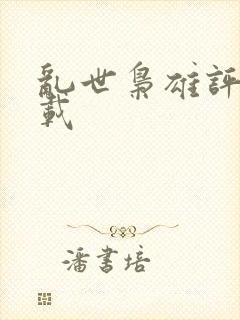 亂世梟雄評
載
潘書培